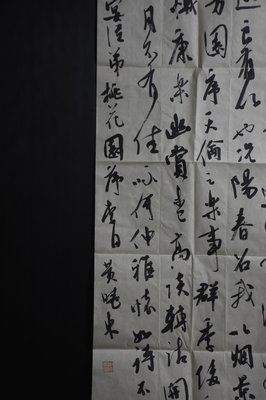 遊良有以也况陽春召我以烟景
芳園序天倫之樂事群季俊
慚康樂幽賞未已高談轉清開
月不有佳詠何伸雅懷如詩不
宴從弟桃花園序李白 黄曉東